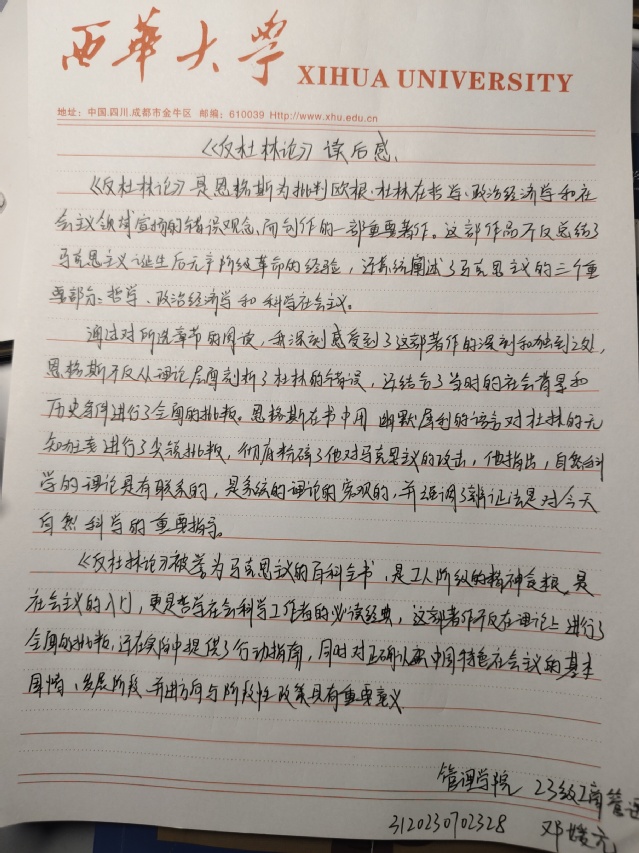 西華大学 XIHUA UNIVERSITY
地址：中国.四川.成都市金牛区 邮编：610039 Http://www.xhu.edu.cn
《反杜林论》读后感、
《反杜林论》是恩格斯为批判欧根·杜林在哲学、政治经济学和社
会主义领域宣扬的错误观念，而创作的一部重要著作。这部作品不仅总结了
马克思主义诞生后无产阶级革命的经验，还系统阐述了马克思主义的三个重
要部分：哲学、政治经济学和科学社会主义。
通过对所选章节的阅读，我深刻感受到了这部著作的深刻和独到之处，
恩格斯不仅从理论层面剖析了杜林的错误，还结合了当时的社会背景和
历史条件进行了全面的批叛。恩格斯在书中用幽默犀利的语言对杜林的无
知狂妄进行了尖锐批叛，彻底粉碎了他对马克思主义的攻击，他指出，自然科
学的理论具有联系的，是系统的理论的宏观的，并强调了辨证法是对今天
自然科学的重要指导。
《反杜林论》被誉为马克思主义的百科全书，是工人阶级的精神食粮，是
社会主义的入门，更是哲学社会科学工作者的必读经典，这部著作不仅在理论上进行了
全面的批叛，还在实际中提供了行动指南，同时对正确认识中国特色社会主义的基本
国情、发展阶段、前进方向与阶段性政策具有重要意义
管理学院 23级工商管理
3120230702328 邓媛元